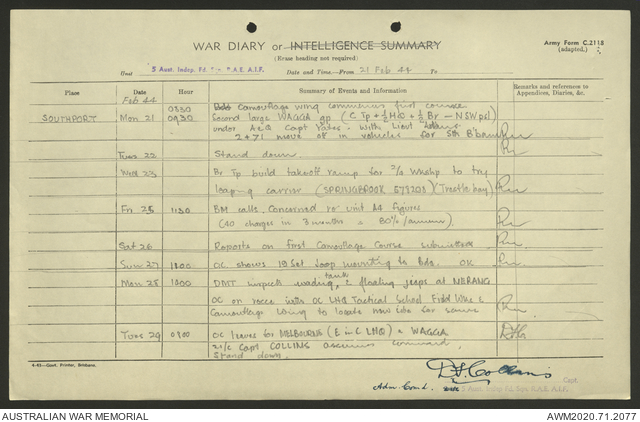 WAR DIARY or INTELLIGENCE SUMMARY
(Erase heading not required)
Army Form C.2118
(adapted.)
Unit 5 Aust. Indep. Fd. R.A.E. A.I.F. Date and Time—From 21 Feb 44 To
Place Date Hour Summary of Events and Information Remarks and references to
Appendices, Diaries, &c.
Feb 44
SOUTHPORT Mon 21 0830 Camouflage wing commences first course
0930 Second large WAGGA gp (C Tp + ½ HQ + ½ Br — NSW psl)
under A&Q Capt - with Lieut
2 + 71 move off in vehicles for Sth B'bane
Tues 22 Stand down
Wed 23 Br Tp build takeoff ramp for 2/ Wkshp to try
leap-g carrier (SPRINGBROOK 579203) (Trestle bay)
Fri 25 1130 BM calls. Concerned re unit AA figures
(40 charges in 3 months = 80%/annum).
Sat 26 Reports on first Camouflage Course submitted
Sun 27 1100 OC shows 19 Set loop mounting to Bde. OK
Mon 28 1000 DMT inspects wading tank, 2 floating jeeps at NERANG
OC on recce with OC LHQ Tactical School Field Wing &
Camouflage Wing to locate new site for same
Tues 29 0900 OC leaves for MELBOURNE (E in C LHQ) & WAGGA
2i/c Capt COLLINS assumes command.
Stand down.
4-43—Govt. Printer, Brisbane.
Collins Capt
Adm. Comd. R.A.E. A.I.F.
AUSTRALIAN WAR MEMORIAL AWM2020.71.2077